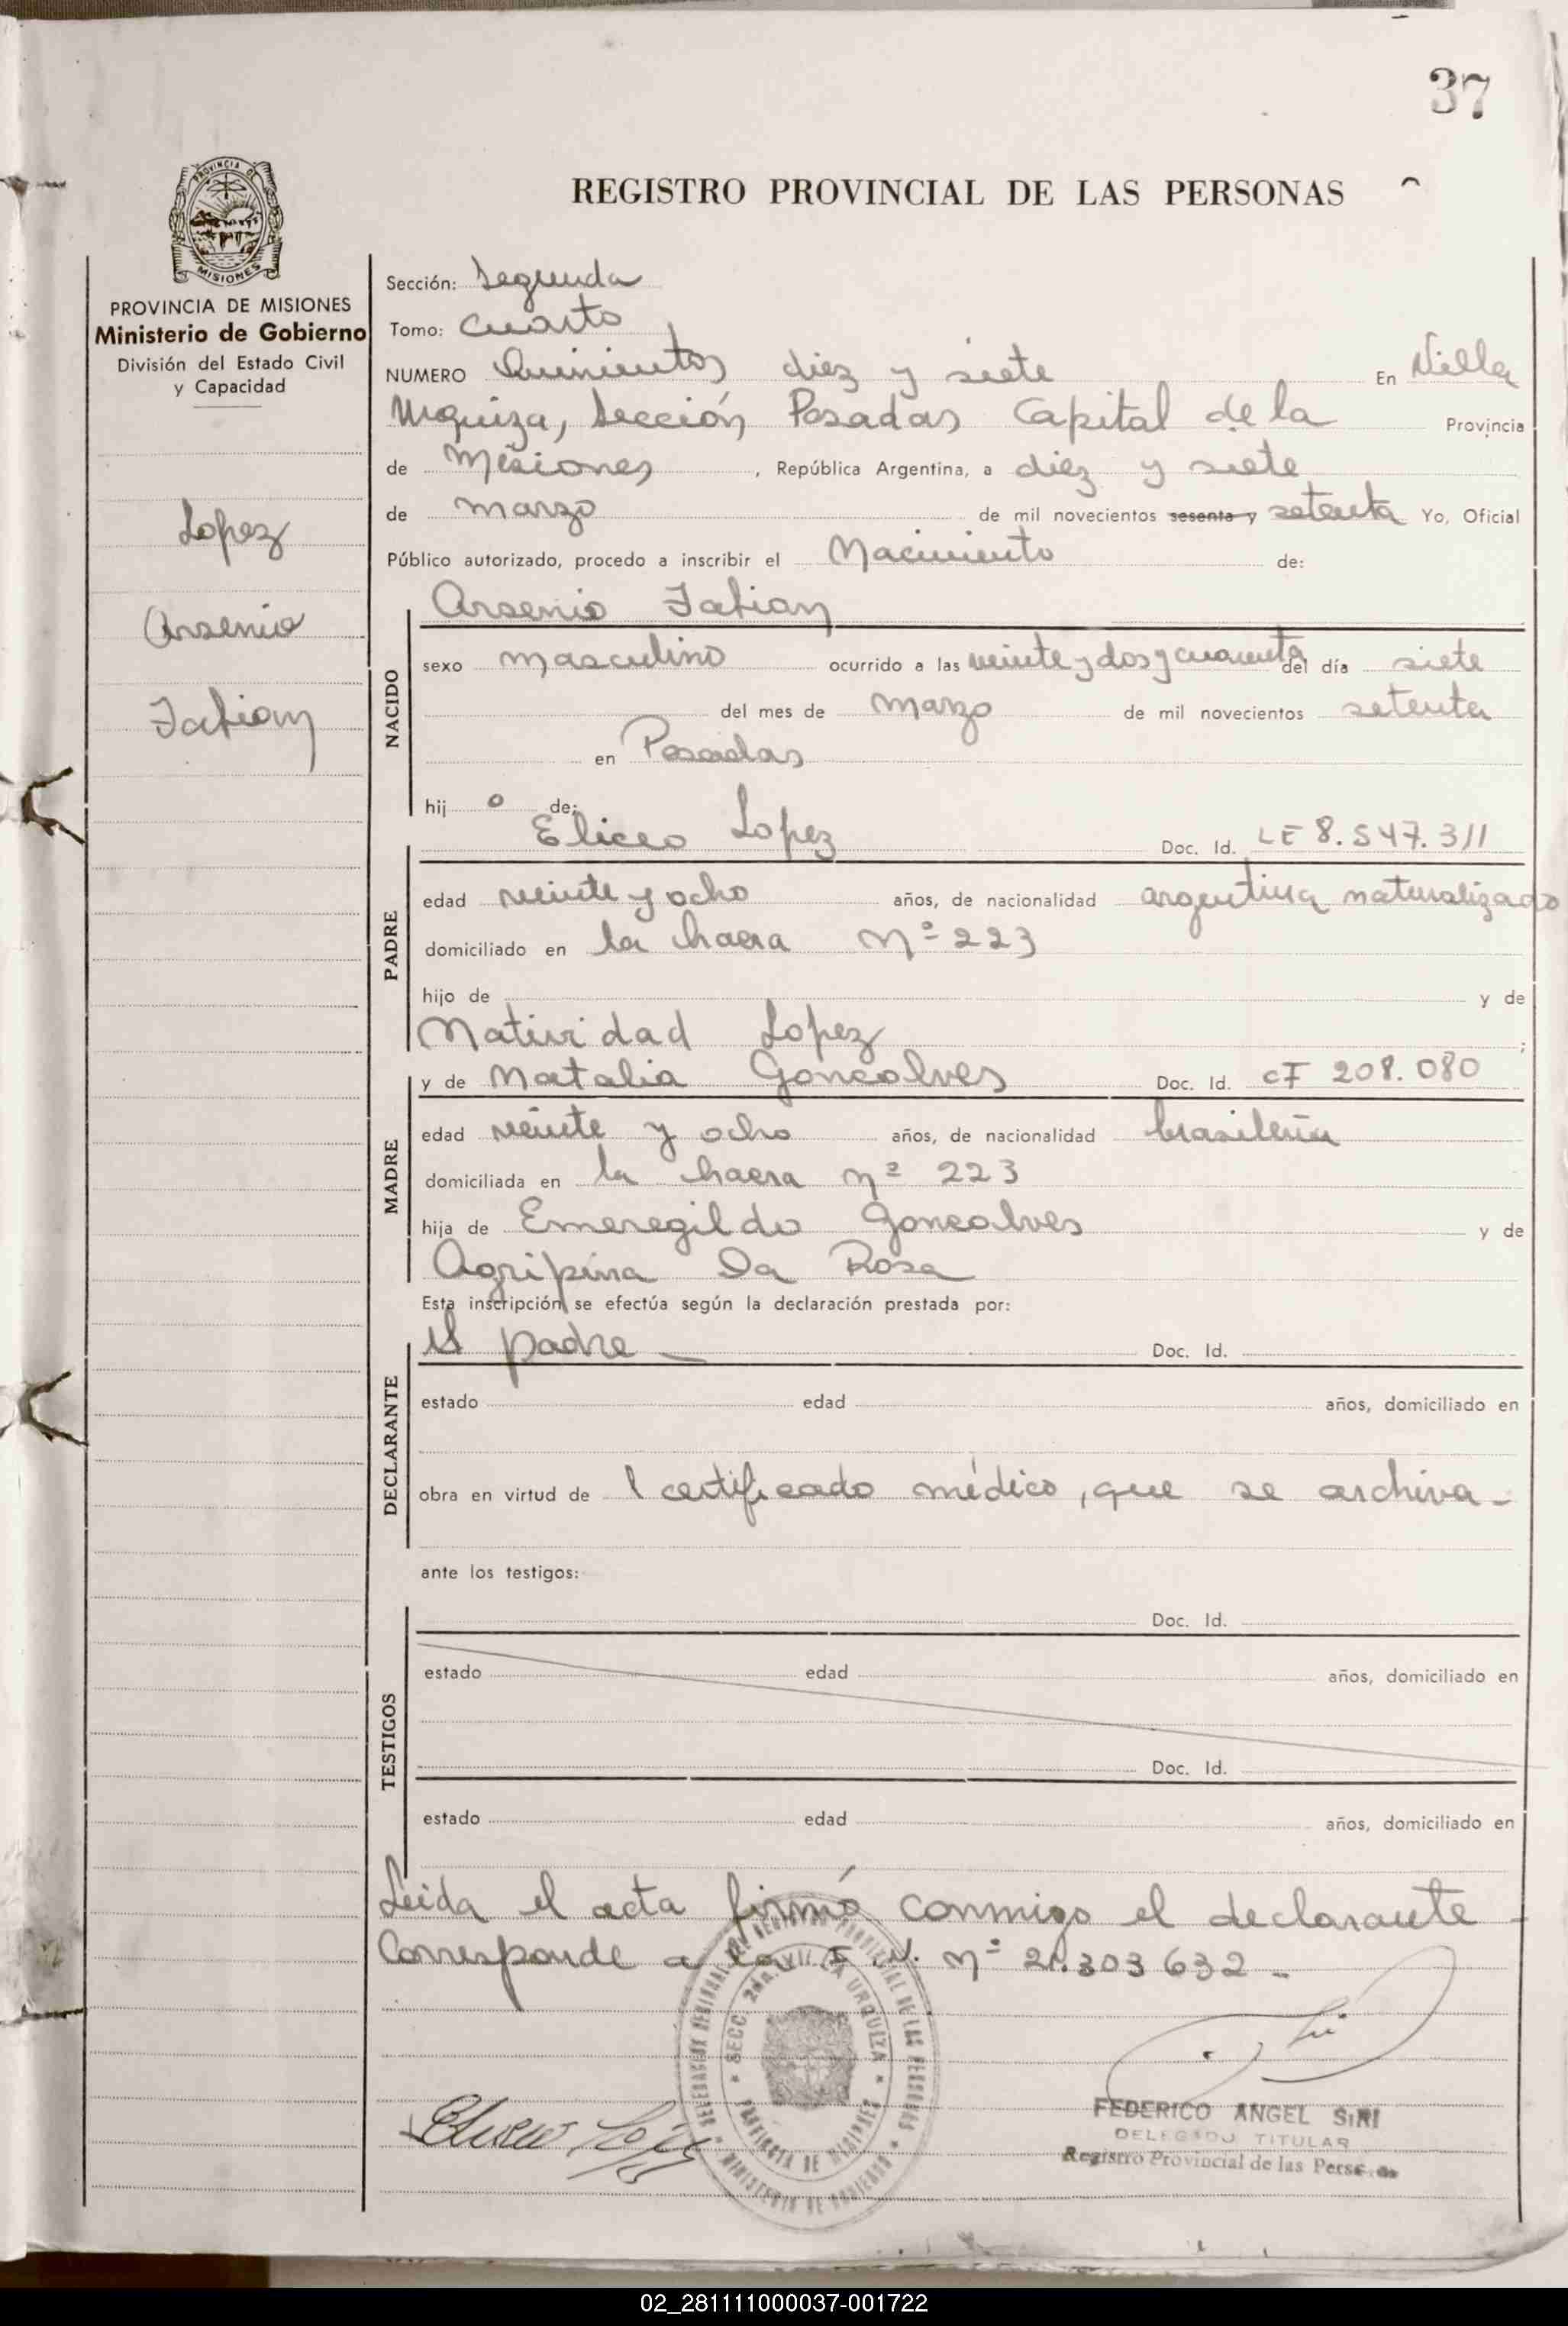 37
REGISTRO PROVINCIAL DE LAS PERSONAS
PROVINCIA DE
MISIONES
PROVINCIA DE MISIONES
Ministerio de Gobierno
División del Estado Civil
y Capacidad
Lopez
Arsenio
Fabian
Sección: Segunda
Tomo: Cuarto
NUMERO Quinientos diez y siete En Villa
Urquiza, Sección Posadas Capital de la Provincia
de Misiones, República Argentina, a diez y siete
de marzo de mil novecientos sesenta y setenta Yo, Oficial
Público autorizado, procedo a inscribir el Nacimiento de:
Arsenio Fabian
NACIDO
sexo masculino ocurrido a las veinte y dos y cuarenta del día siete
del mes de marzo de mil novecientos setenta
en Posadas
hij o de:
Eliceo Lopez Doc. Id. LE 8.547.311
PADRE
edad veinte y ocho años, de nacionalidad argentina naturalizado
domiciliado en la chacra Nº 223
hijo de y de
Natividad Lopez ;
y de Natalia Goncalves Doc. Id. CI 208.080
MADRE
edad veinte y ocho años, de nacionalidad brasileña
domiciliada en la chacra nº 223
hija de Emeregildo Goncalves y de
Agripina Da Rosa
Esta inscripción se efectúa según la declaración prestada por:
El padre — Doc. Id.
DECLARANTE
estado edad años, domiciliado en
obra en virtud de 1 certificado médico, que se archiva -
ante los testigos:
Doc. Id.
TESTIGOS
estado edad años, domiciliado en
Doc. Id.
estado edad años, domiciliado en
Leida el acta firmó conmigo el declarante -
Corresponde a la nº 21.303632 -
SECC. 2da. VILLA URQUIZA
PROVINCIA DE MISIONES
Eliceo López
FEDERICO ANGEL SIRI
DELEGADO TITULAR
Registro Provincial de las Personas
02_281111000037-001722